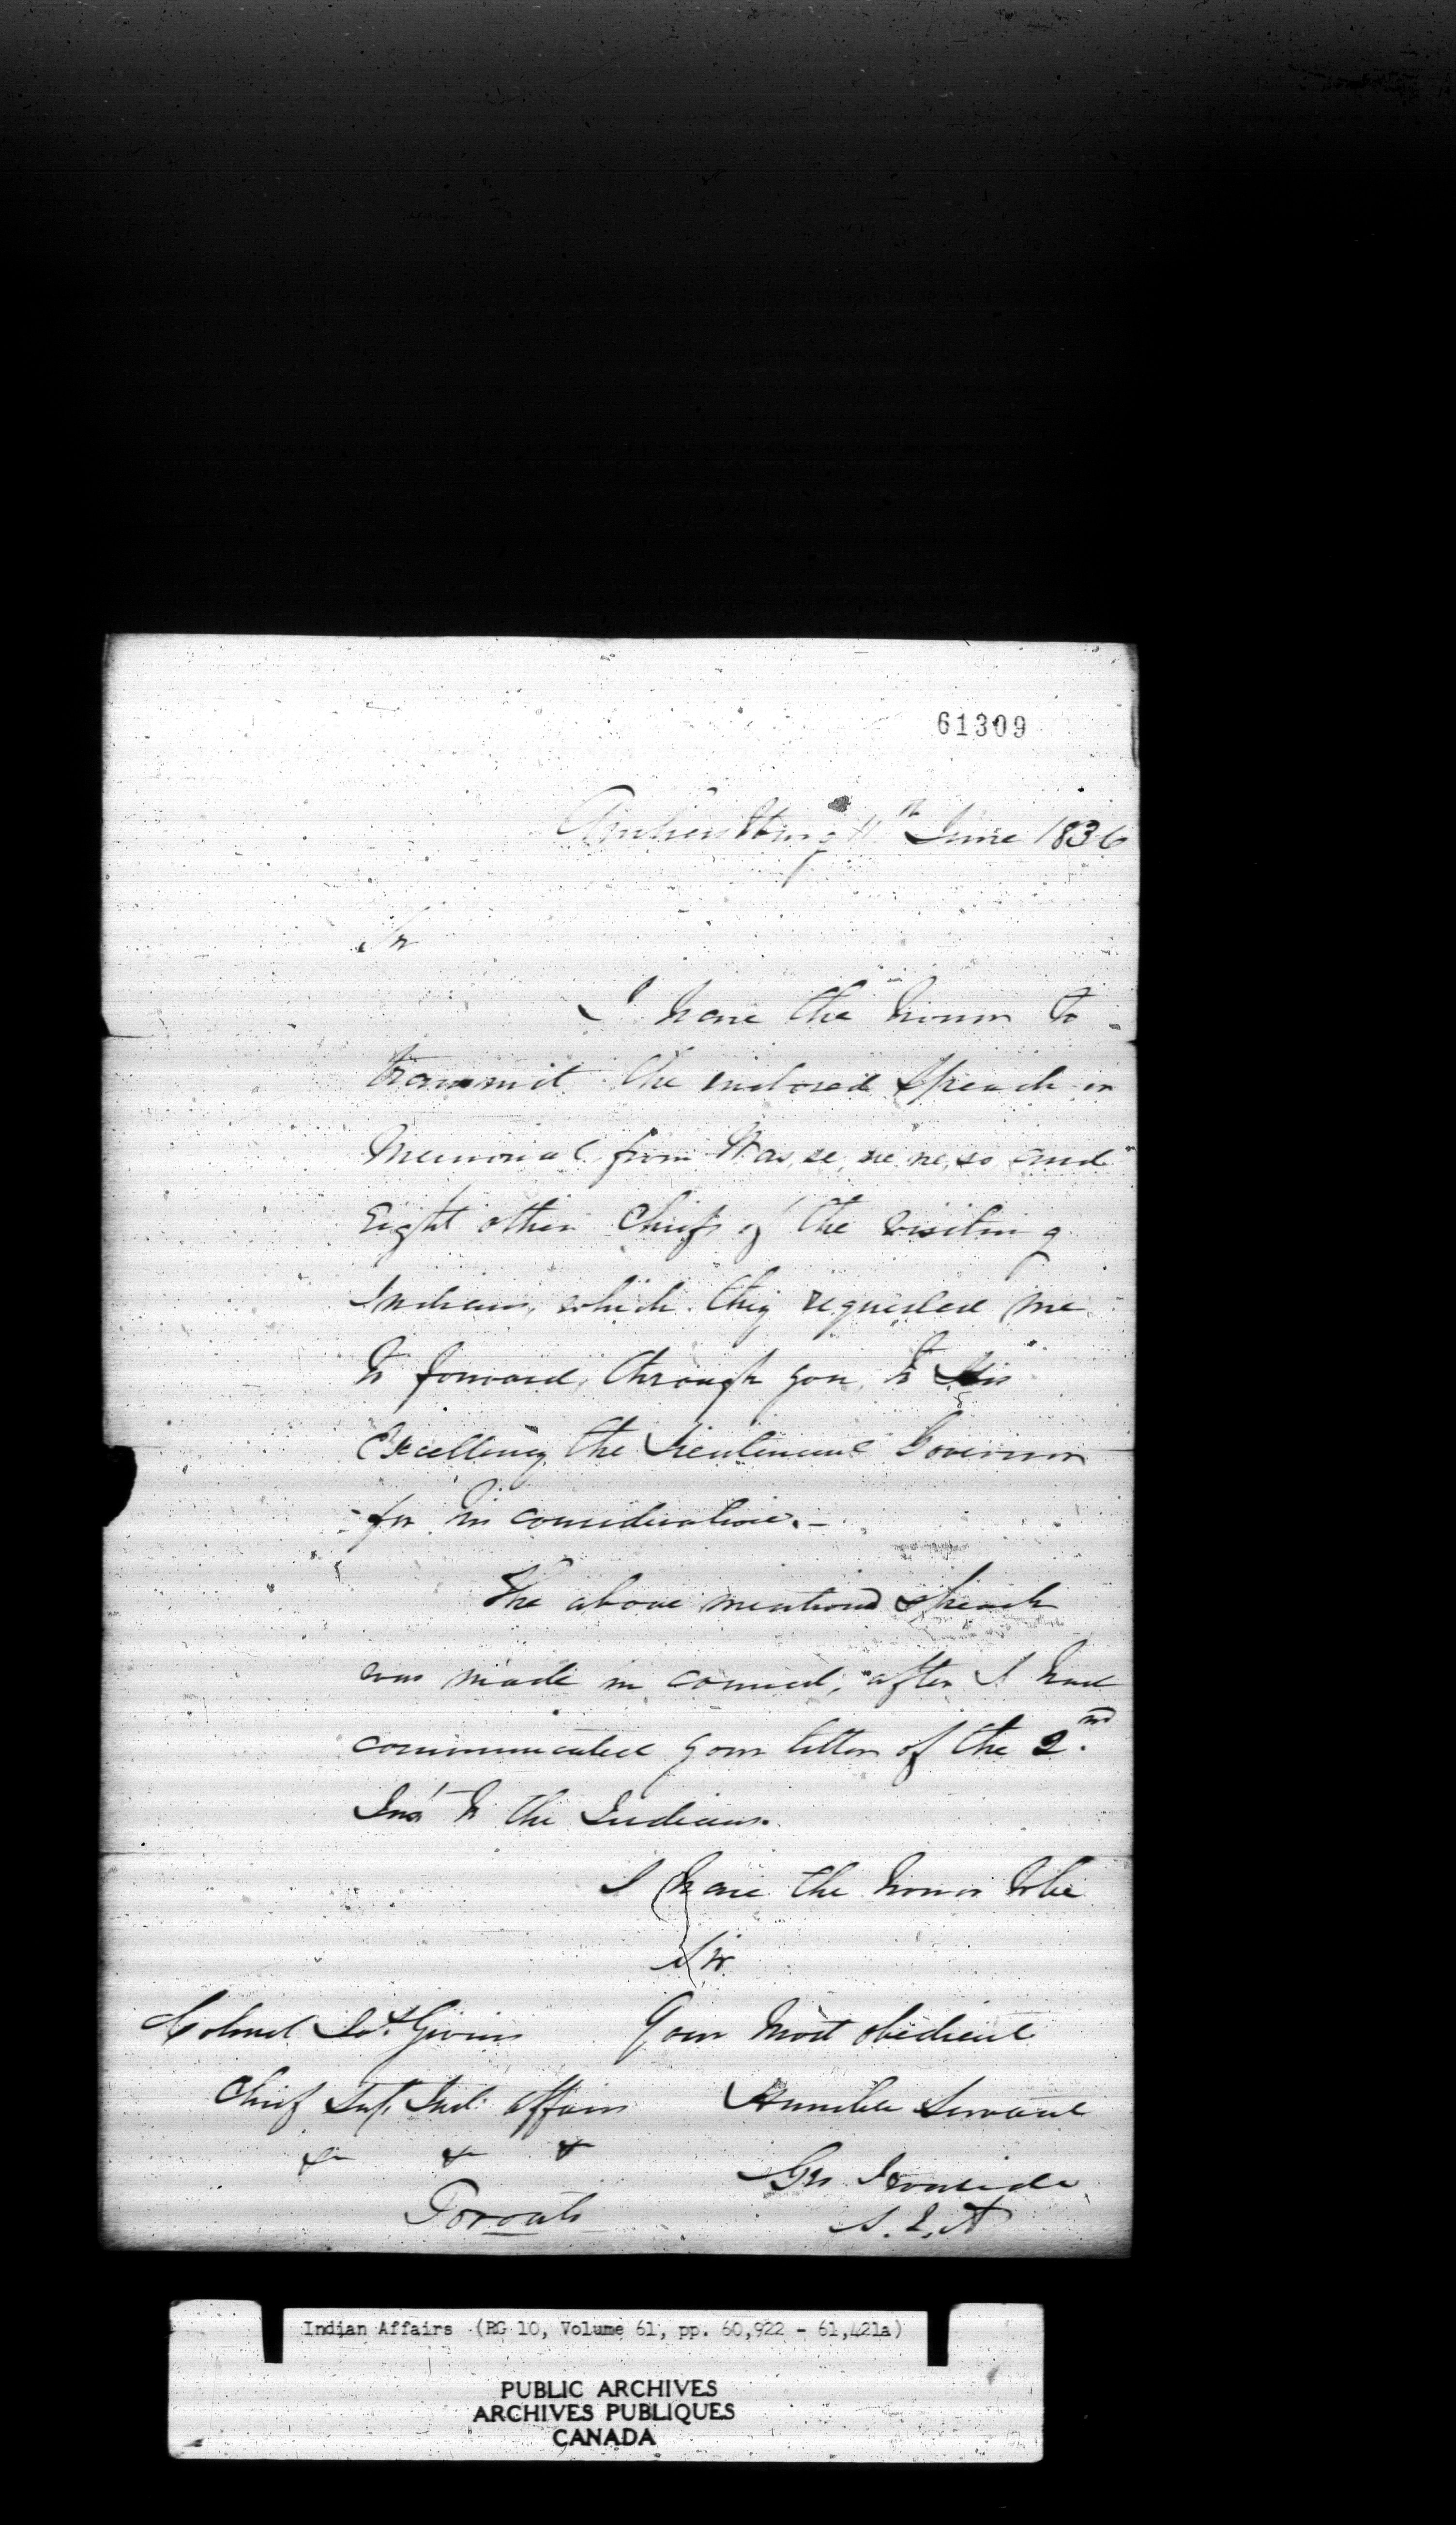 61309
Amherstburg 11th June 1836
Sir
I have the honor to
transmit the inclosed Speech or
Memorial from Was,se,ne,ne,so and
Eight other Chiefs of the visiting
Indians, which they requested me
to forward, through you, to His
Excellency the Lieutenant Governor
for his consideration.-
The above mentiond speech
was made in council, after I had
communicated your letter of the 2nd.
Inst to the Indians.
I have the honor to be
Sir
Your most obedient
Humble Servant
Geo Ironside
S.I.A
Colonel Jas. Givins
Chief Supt. Ind. Affairs
&c &c &c
Toronto
Indian Affairs (RG 10, Volume 61, pp. 60,922 - 61,421a)
PUBLIC ARCHIVES
ARCHIVES PUBLIQUES
CANADA